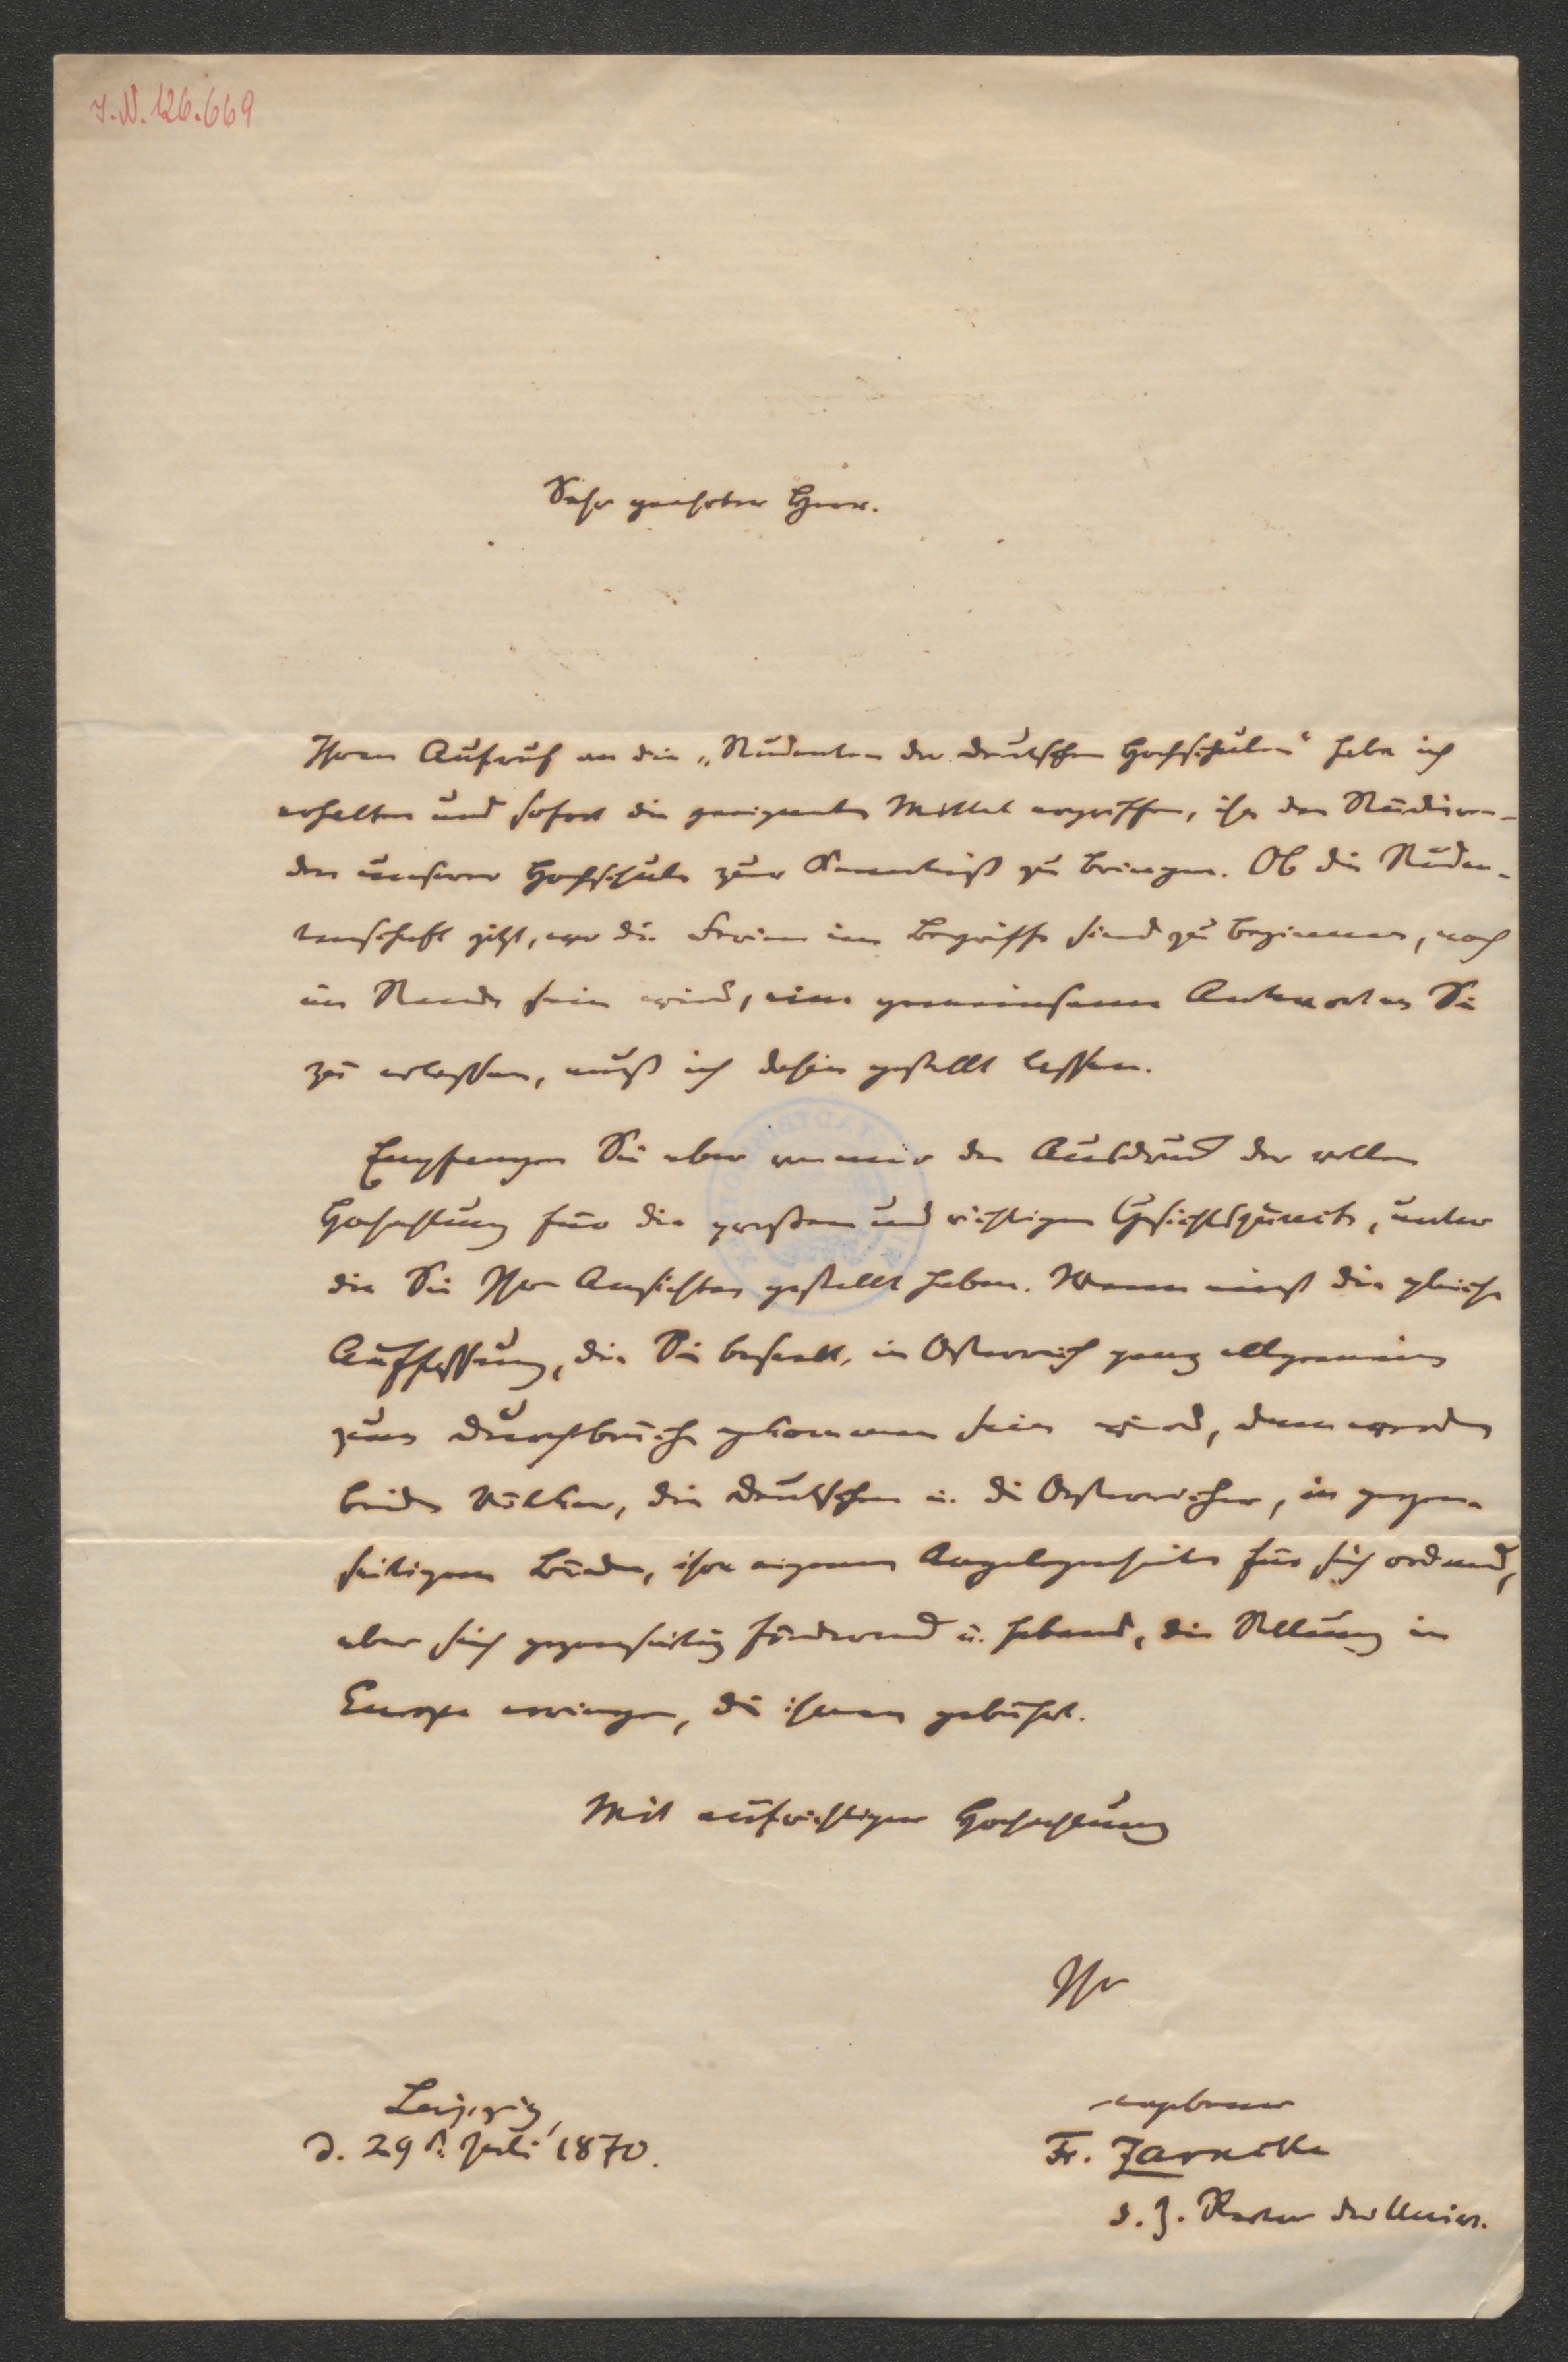 I.N. 126.669
Sehr geehrter Herr.
Ihren Aufruf an die „Studenten der deutschen Hochschulen“ habe ich
erhalten und sofort die geeigneten Mittel ergriffen, ihn den Studiren-
den unserer Hochschule zur Kenntniß zu bringen. Ob die Studen-
tenschaft jetzt, wo die Ferien im Begriffe sind zu beginnen, noch
im Stande sein wird, eine gemeinsame Antwort an Sie
zu erlassen, muß ich dahin gestellt lassen.
Empfangen Sie aber von mir den Ausdruck der vollen
Hochachtung für die großen und richtigen Gesichtspuncte, unter
die Sie Ihre Ansichten gestellt haben. Wenn einst die gleiche
Auffassung, die Sie beseelt, in Österreich ganz allgemein
zum Durchbruche gekommen sein wird, dann werden
beide Völker, die Deutschen u. die Oesterreicher, in gegen-
seitigem Bunde, ihre eigenen Angelegenheiten für sich ordnend,
aber sich gegenseitig fördernd u. hebend, die Stellung in
Europa erringen, die ihnen gebührt.
Mit aufrichtiger Hochachtung
Ihr
Leipzig,
d. 29 t. Juli 1870.
ergebener
Fr. Zarncke
d. Z. Rector der Univ.